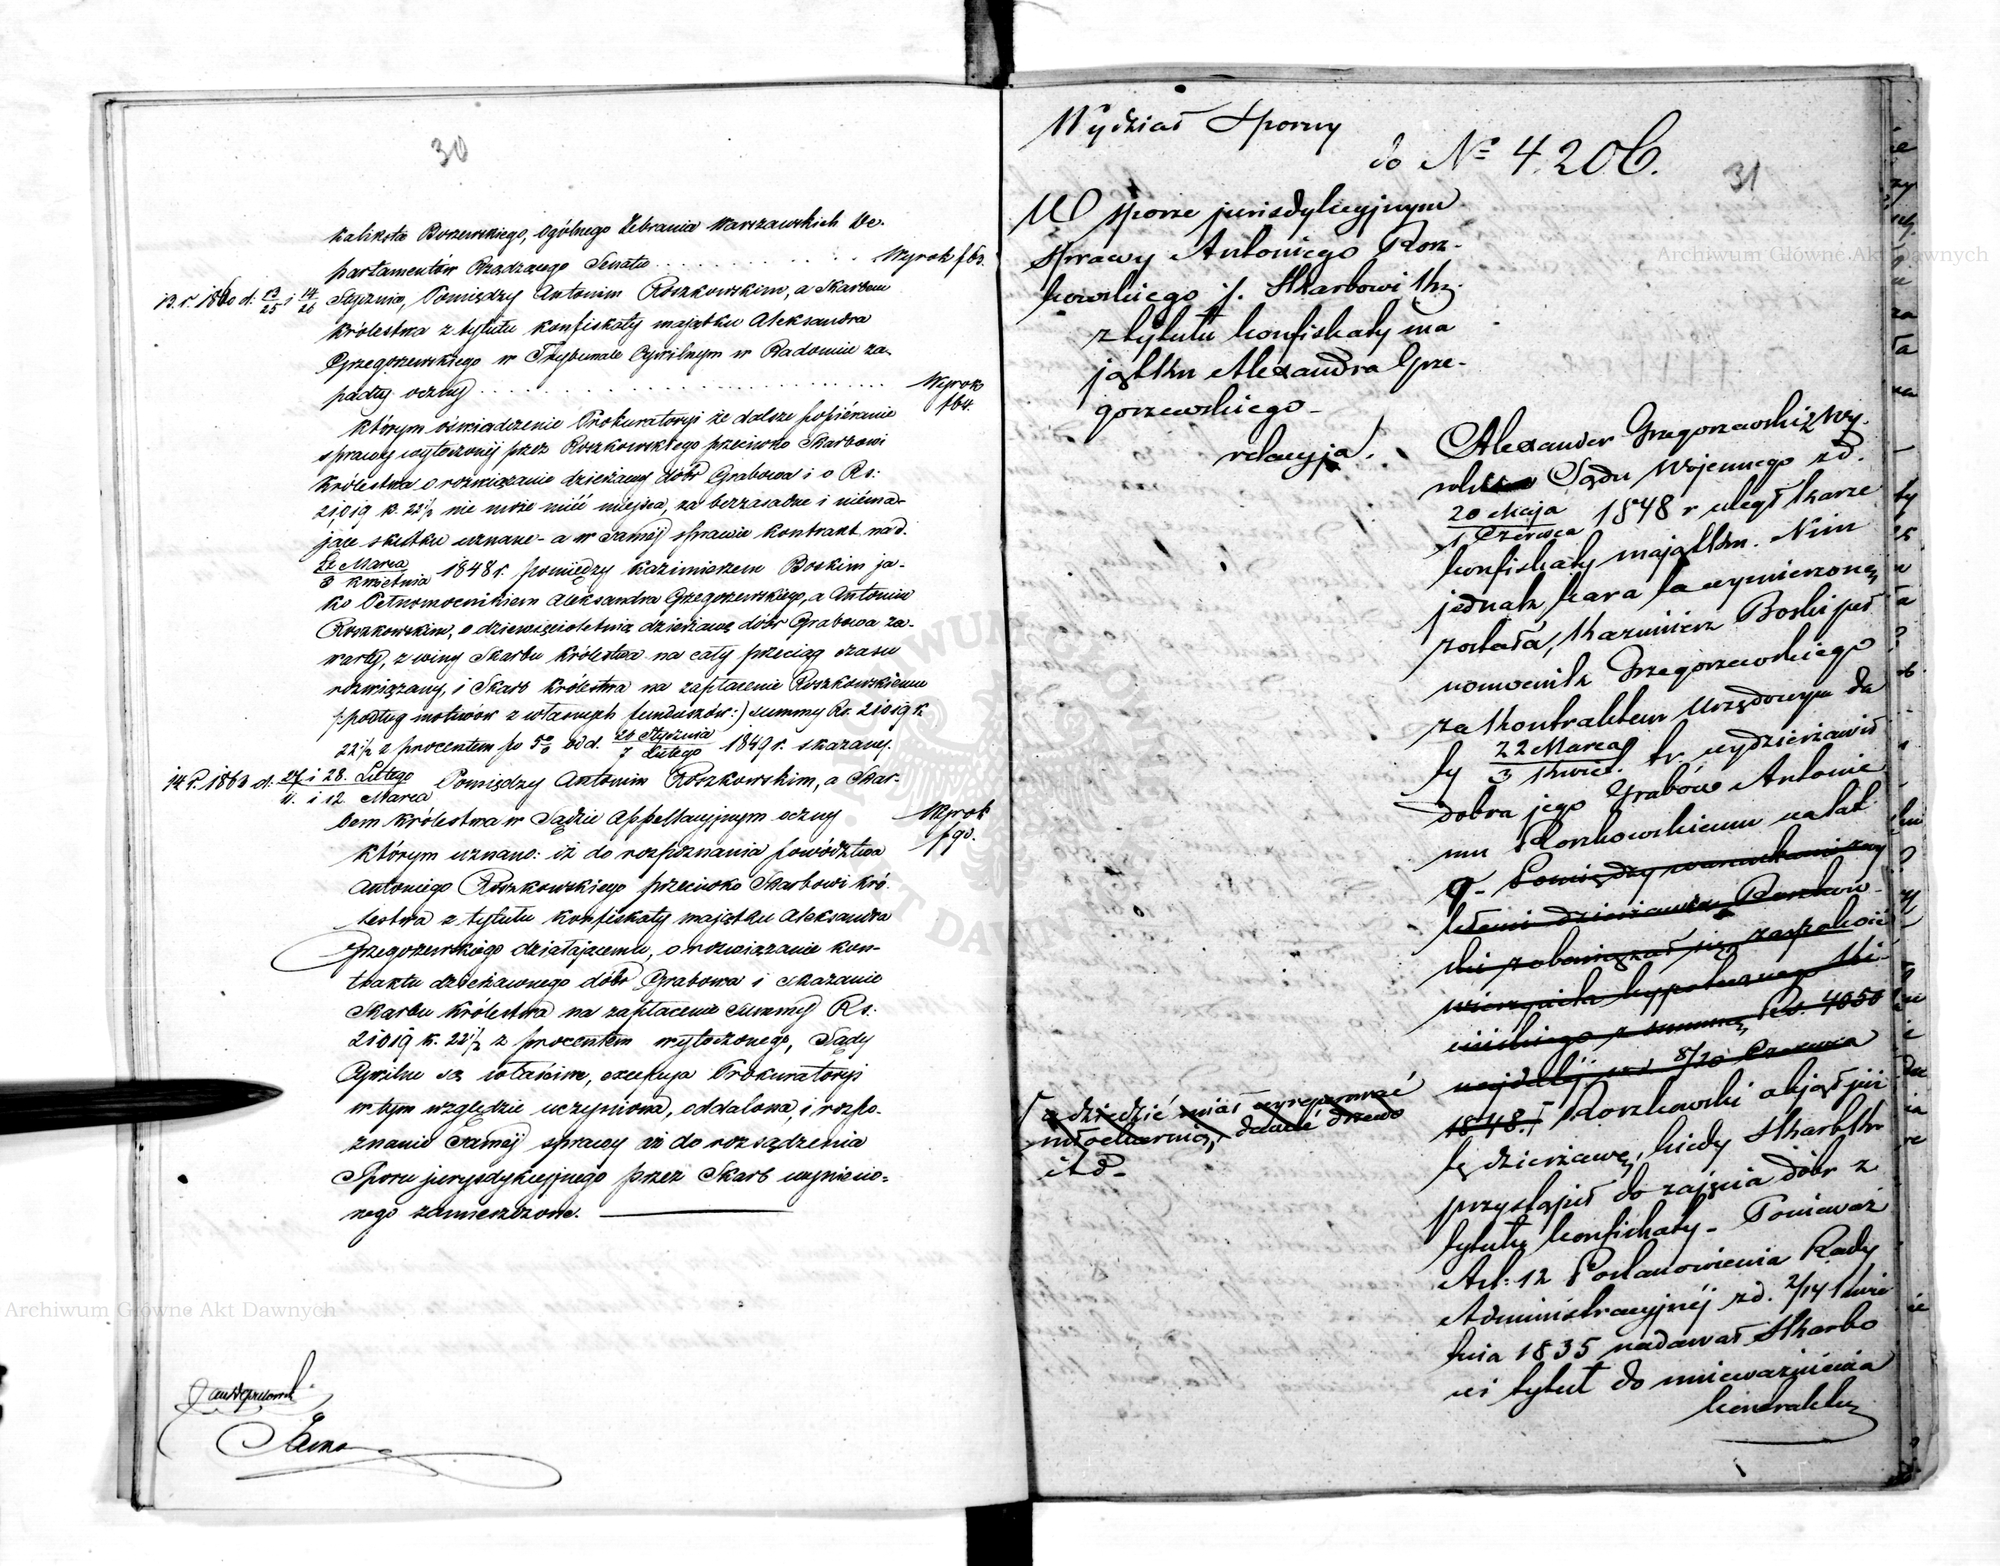 30
Kaliksta Borzewskiego, Ogólnego Zebrania Warszawskich De-
partamentów Rządzącego Senatu . . . . . . Wyrok f 63.
13. r. 1860 d. 13/25 i 14/26 Stycznia, Pomiędzy Antonim Roszkowskim, a Skarbem
Królestwa z tytułu konfiskaty majątku Aleksandra
Grzegorzewskiego w Trybunale Cywilnym w Radomiu za-
padły oczny . . . . . . Wyrok f 64.
którym oświadczenie Prokuratoryi że dalsze popiéranie
sprawy wytoczonéj przez Roszkowskiego przeciwko Skarbowi
Królestwa o rozwiązanie dzierżawy dóbr Grabowa i o Rs:
21019 k. 22½ nie może mieć miejsca, za bezzasadne i niéma-
jące skutku uznane - a w saméj sprawie Kontrakt na d.
22 Marca/3 Kwietnia 1848 r. pomiędzy Kazimierzem Boskim ja-
ko Pełnomocnikiem Aleksandra Grzegorzewskiego, a Antonim
Roszkowskim, o dziewięcioletnią dzierżawę dóbr Grabowa za-
warty, z winy Skarbu Królestwa na cały przeciąg czasu
rozwiązany, i Skarb Królestwa na zapłacenie Roszkowskiemu
/:podług motywów z własnych funduszów:/ summy Rs. 21019 k.
22½ z procentem po 5% od d. 26 Stycznia/7 Lutego 1849 r. skazany.
14 r. 1860 d. 27 i 28. Lutego/11. i 12 Marca Pomiędzy Antonim Roszkowskim, a Skar-
bem Królestwa w Sądzie Appellacyjnym oczny Wyrok f 90.
którym uznano: iż do rozpoznania powództwa
Antoniego Roszkowskiego przeciwko Skarbowi Kró-
lestwa z tytułu Konfiskaty majątku Aleksandra
Grzegorzewskiego działającemu, o rozwiązanie kon-
traktu dzierżawnego dóbr Grabowa i skazanie
Skarbu Królestwa na zapłacenie summy Rs.
21019 k. 22½ z procentem wytoczonego, Sądy
Cywilne są właściwe, excepcja Prokuratoryi
w tym względzie uczyniona, oddalona, i rozpo-
znanie saméj sprawy aż do rozsądzenia
Sporu jurysdykcyjnego przez Skarb wyniesio-
nego zawieszone.
Wydział Sporny
do № 4.206.
31
W sporze jurisdykcyjnym
sprawy Antoniego Rosz-
kowskiego p. Skarbowi Kr.
z tytułu konfiskaty ma
jątku Alexandra Grze-
gorzewskiego -
relacyja.
Alexander Grzegorzewski z Wy-
roku Sądu Wojennego z d.
20 Maja/1 Czerwca 1848 r uległ karze
konfiskaty majątku. Nim
jednak kara ta wymierzoną
została, Kazimierz Boski peł
nomocnik Grzegorzewskiego
za Kontraktem Urzędowym da
ty 22 Marca/3 Kwiet. tr. wydzierżawił
dobra jego Grabów Antonie
mu Roszkowskiemu na lat
9. - Pomiędzy warunkami zwy
kłemi dzierżawca Roszkow-
ski zobowiązał się zaspokoić
wierzyciela hypotecznego
z summą Rs. 4050
najdaléj na d 8/20 Czerwca
1848. Roszkowski objął już
tę dzierżawę, kiedy Skarb Kr.
przystąpił do zajęcia dóbr z
tytułu konfiskaty - Ponieważ
Art: 12 Postanowienia Rady
Administracyjnéj z d. 2/14 Kwie
tnia 1835 nadawał Skarbo
wi tytuł do unieważnienia
kontraktu
a dziedzic miał wyreperować
młockarnią, dawać drzewo
itd -
Archiwum Główne Akt Dawnych
Archiwum Główne Akt Dawnych